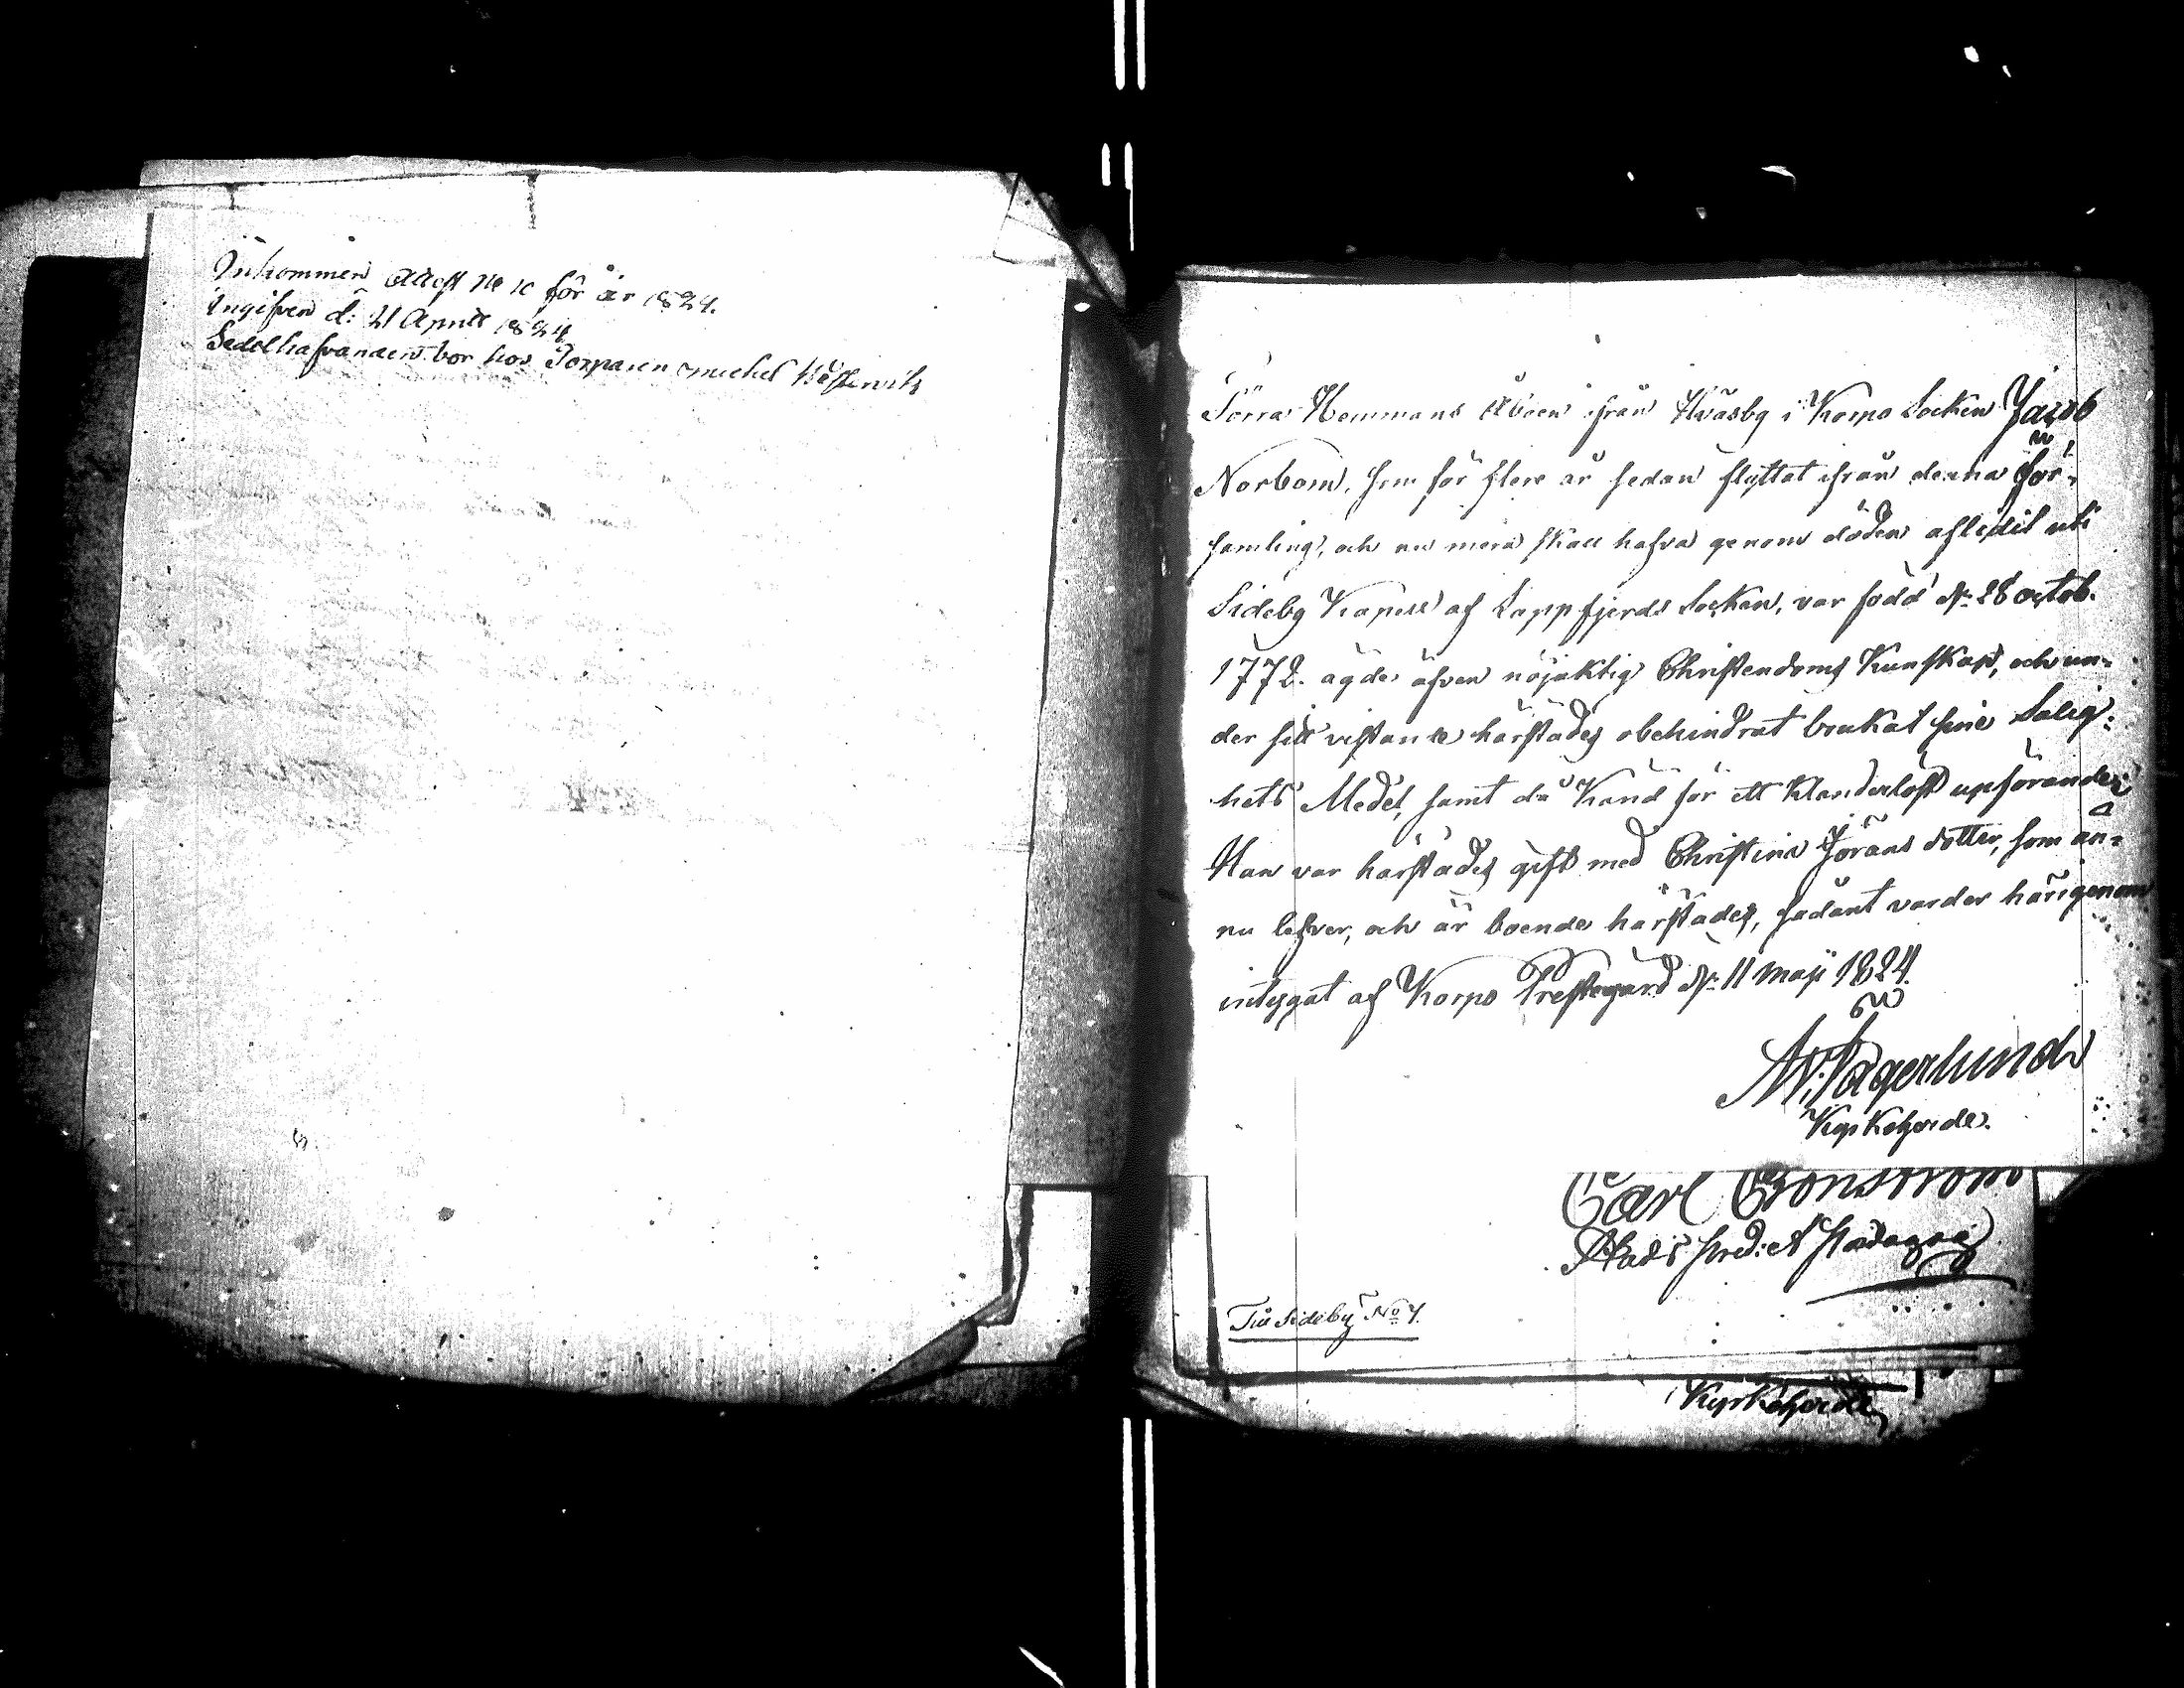 Inkommen Attest No 10 för år 1824.
Ingifven d: 21 April 1824
Sedelhafvanden bor hos Torparen Michel
Förra Hemmans Åboen ifrån Hväsby i Korpo Socken Jacob
Norbom, som för flere år sedan flyttat ifrån denna för-
samling, och nu mera skall hafva genom döden aflidit uti
Sideby Kapell af Lappfjerds Socken, var född d: 28 octob.
1772. ägde äfven nöjaktig Christendoms Kunskap, och un-
der sitt vistande härstädes obehindrat brukat sine Salig-
hets Medel, samt då Känd för ett Klanderlöst upförande;
Han var härstädes gift med Christina Jörans dotter, som än-
nu lefver, och är boende härstädes, sådant varder härigenom
intygat af Korpo Prestegård d: 11 Maji 1824.
Fagerlund
Kyrkoherde.
Carl
Stads pred: et Pædagog
Till Sideby No 7.
Kyrkoherde